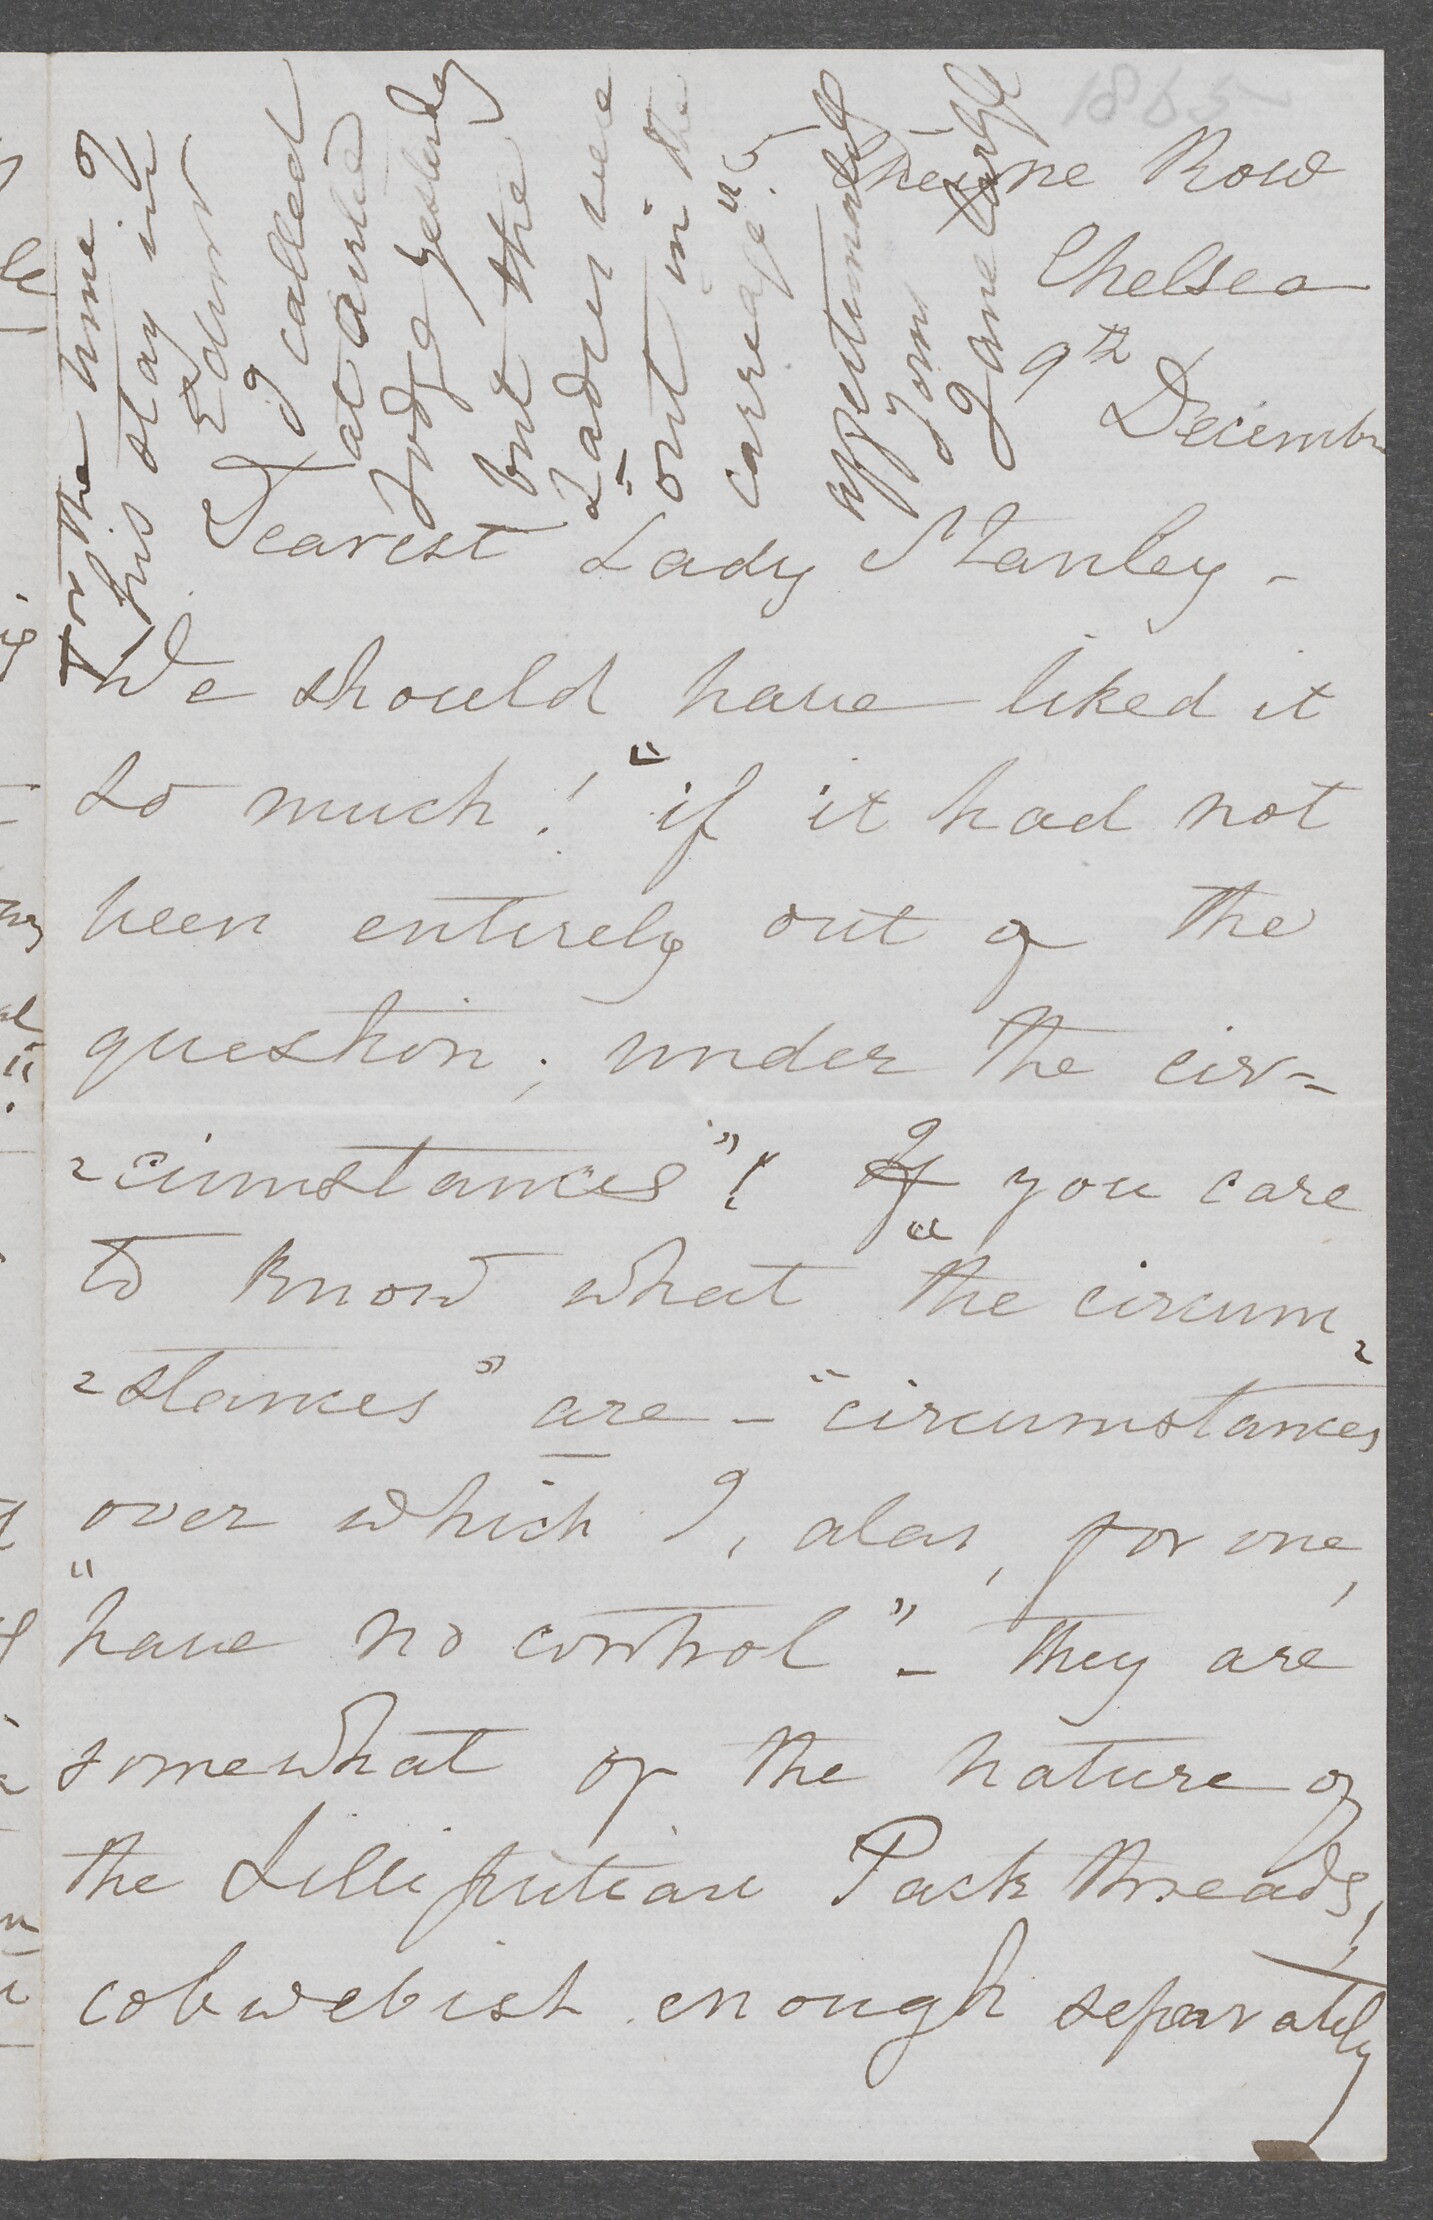 1865
5 Cheyne Row
Chelsea
9th Decembr
Dearest Lady Stanley -
We should have liked it
so much! "if it had not
been entirely out of the
question; under the cir-
-cumstances"! If you care
to know what "the circum-
-stances" are - "circumstances
over which I, alas, for one,
"have no control" - They are
somewhat of the nature of
the Lilliputian Pack threads,
cobwebish enough separately
for the time of
his stay in
Edinr
I called
at Airlie
Lodge yesterday
but the
"Ladies were
out in the
carriage".
affectionately
Yours
Jane Carlyle